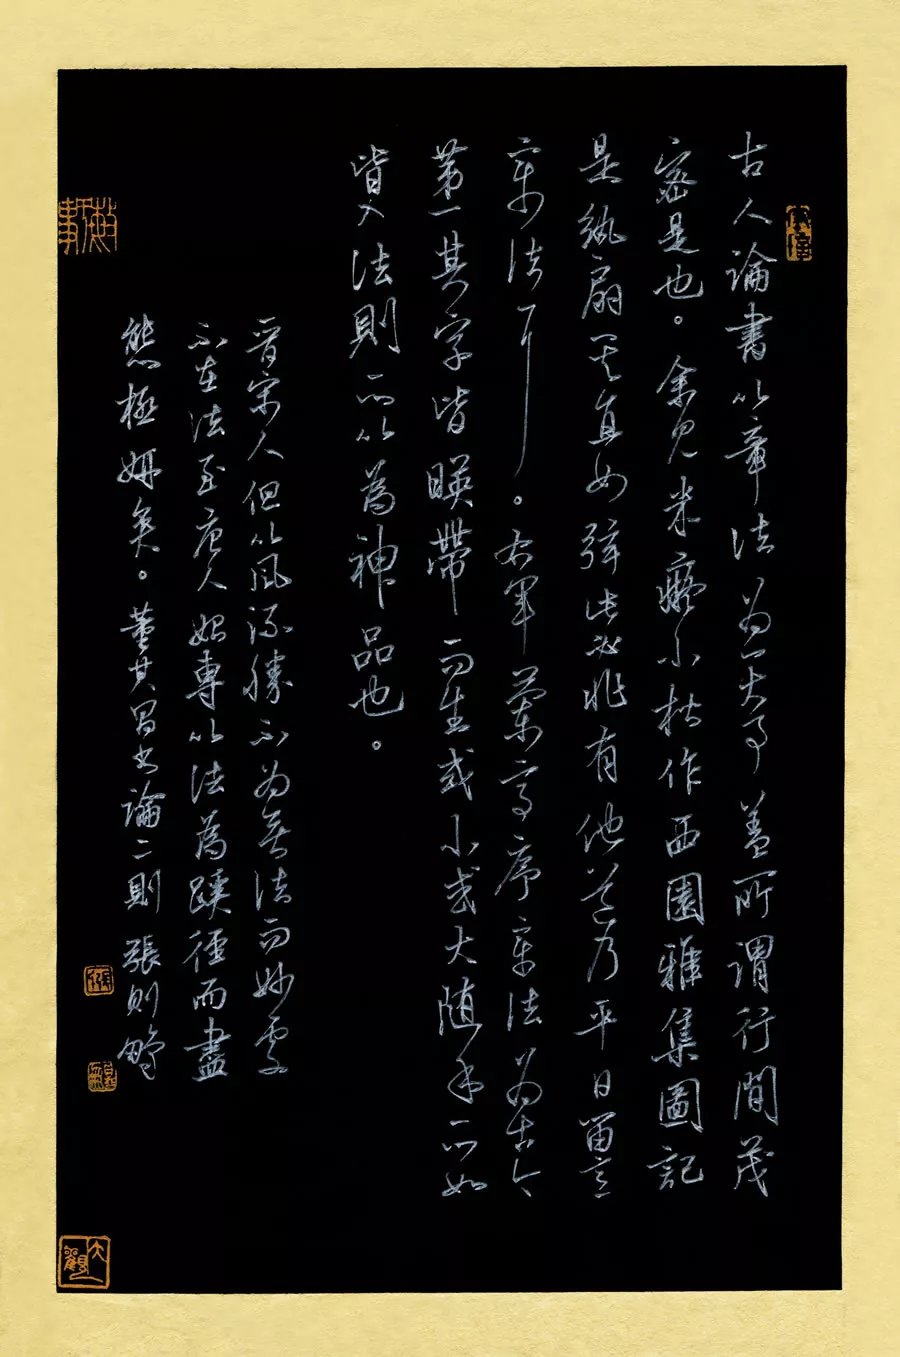 古人論書以章法為一大事蓋所謂行間茂
密是也。余見米癡小楷作西園雅集圖記
是紈扇其直如弦此必非有他道乃平日留意
章法耳。右軍蘭亭序章法為古今
第一其字皆映帶而生或小或大随手所如
皆入法則所以為神品也。
晋宋人但以風流勝不為無法而妙處
不在法至唐人始專以法為蹊徑而盡
態極妍矣。董其昌書論二則張則
大觀